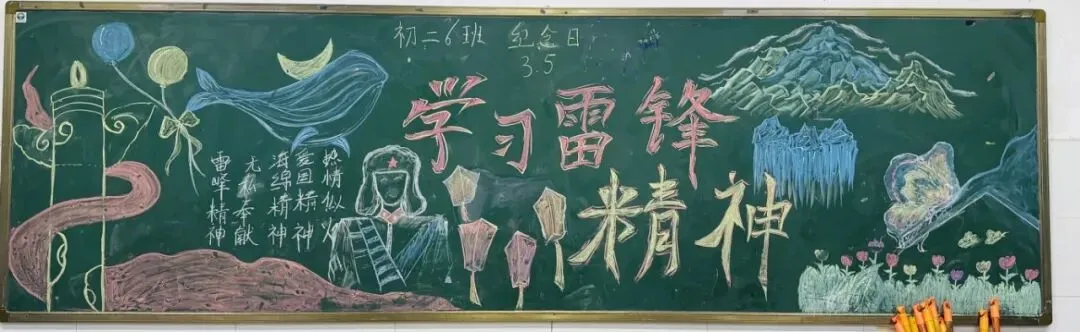 初二6班 纪念日
3.5
学习雷锋
精神
热情似火
爱国精神
海绵精神
无私奉献
雷峰精神